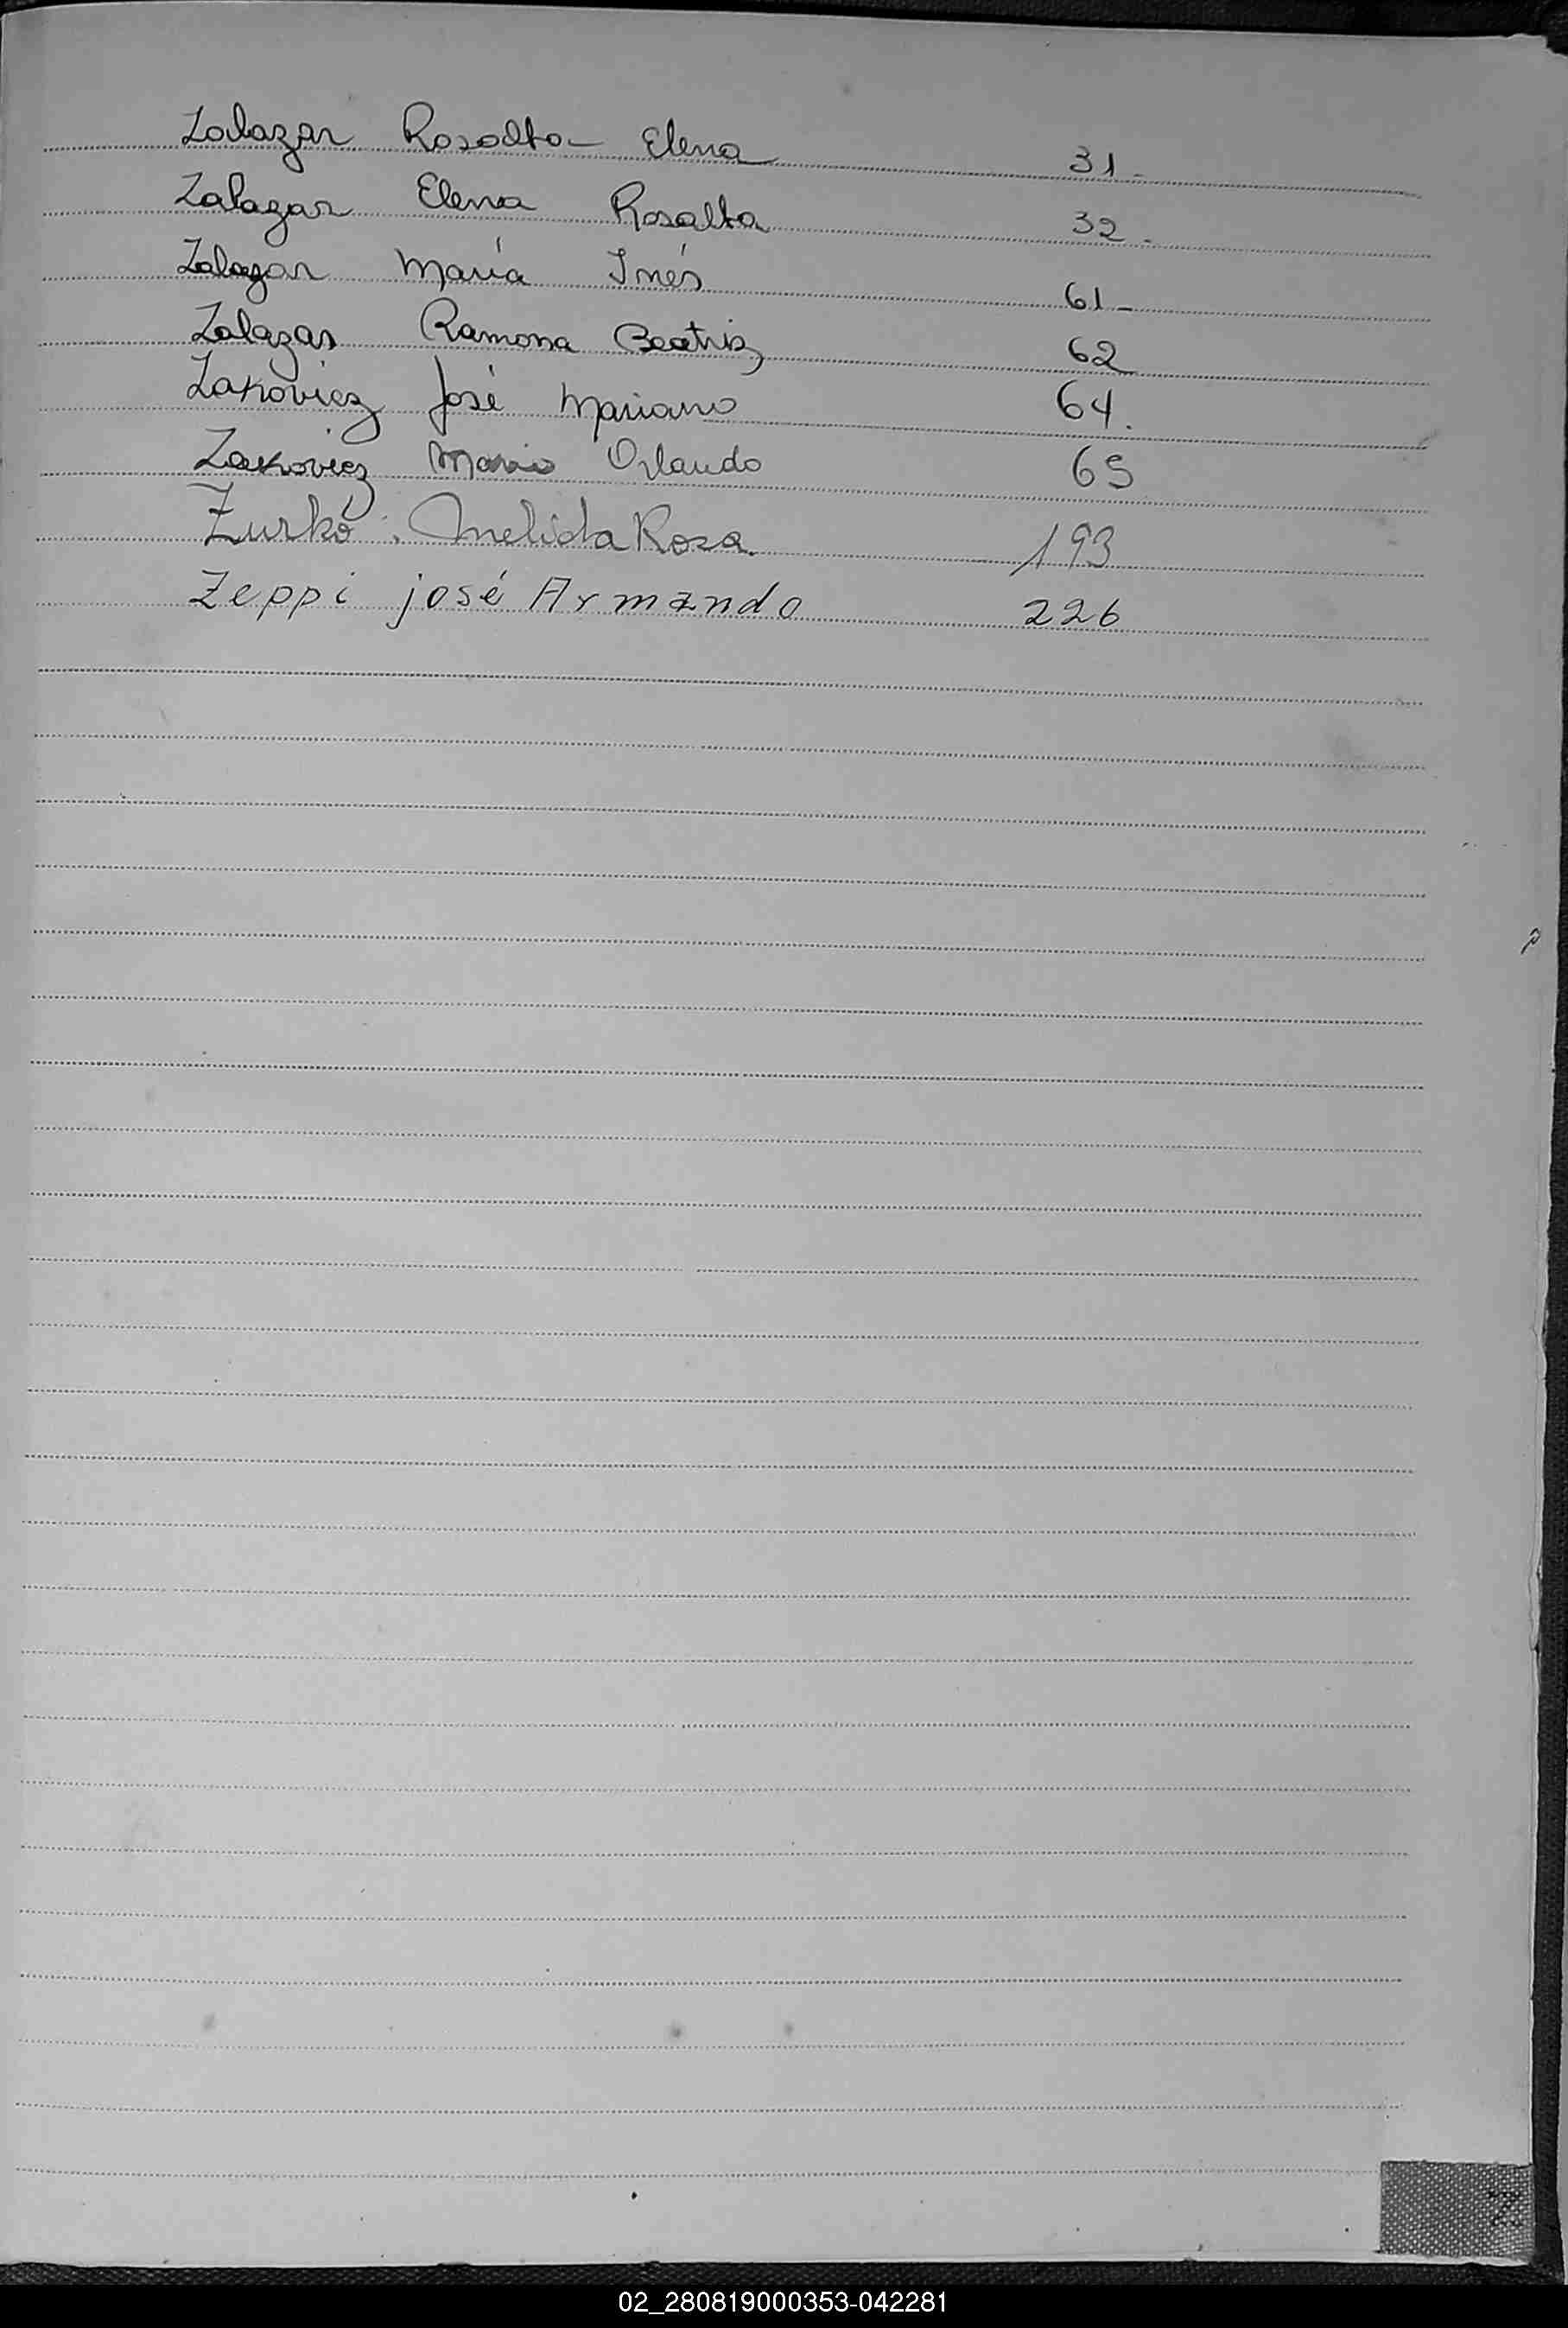 Zalazar Rosalba Elena 31-
Zalazar Elena Rosalba 32-
Zalazar María Inés 61-
Zalazar Ramona Beatriz 62
Zakoviez José Mariano 64.
Zakoviez Mario Orlando 65
Zurkó. Melida Rosa. 193
Zeppi josé Armando 226
Z
02_280819000353-042281